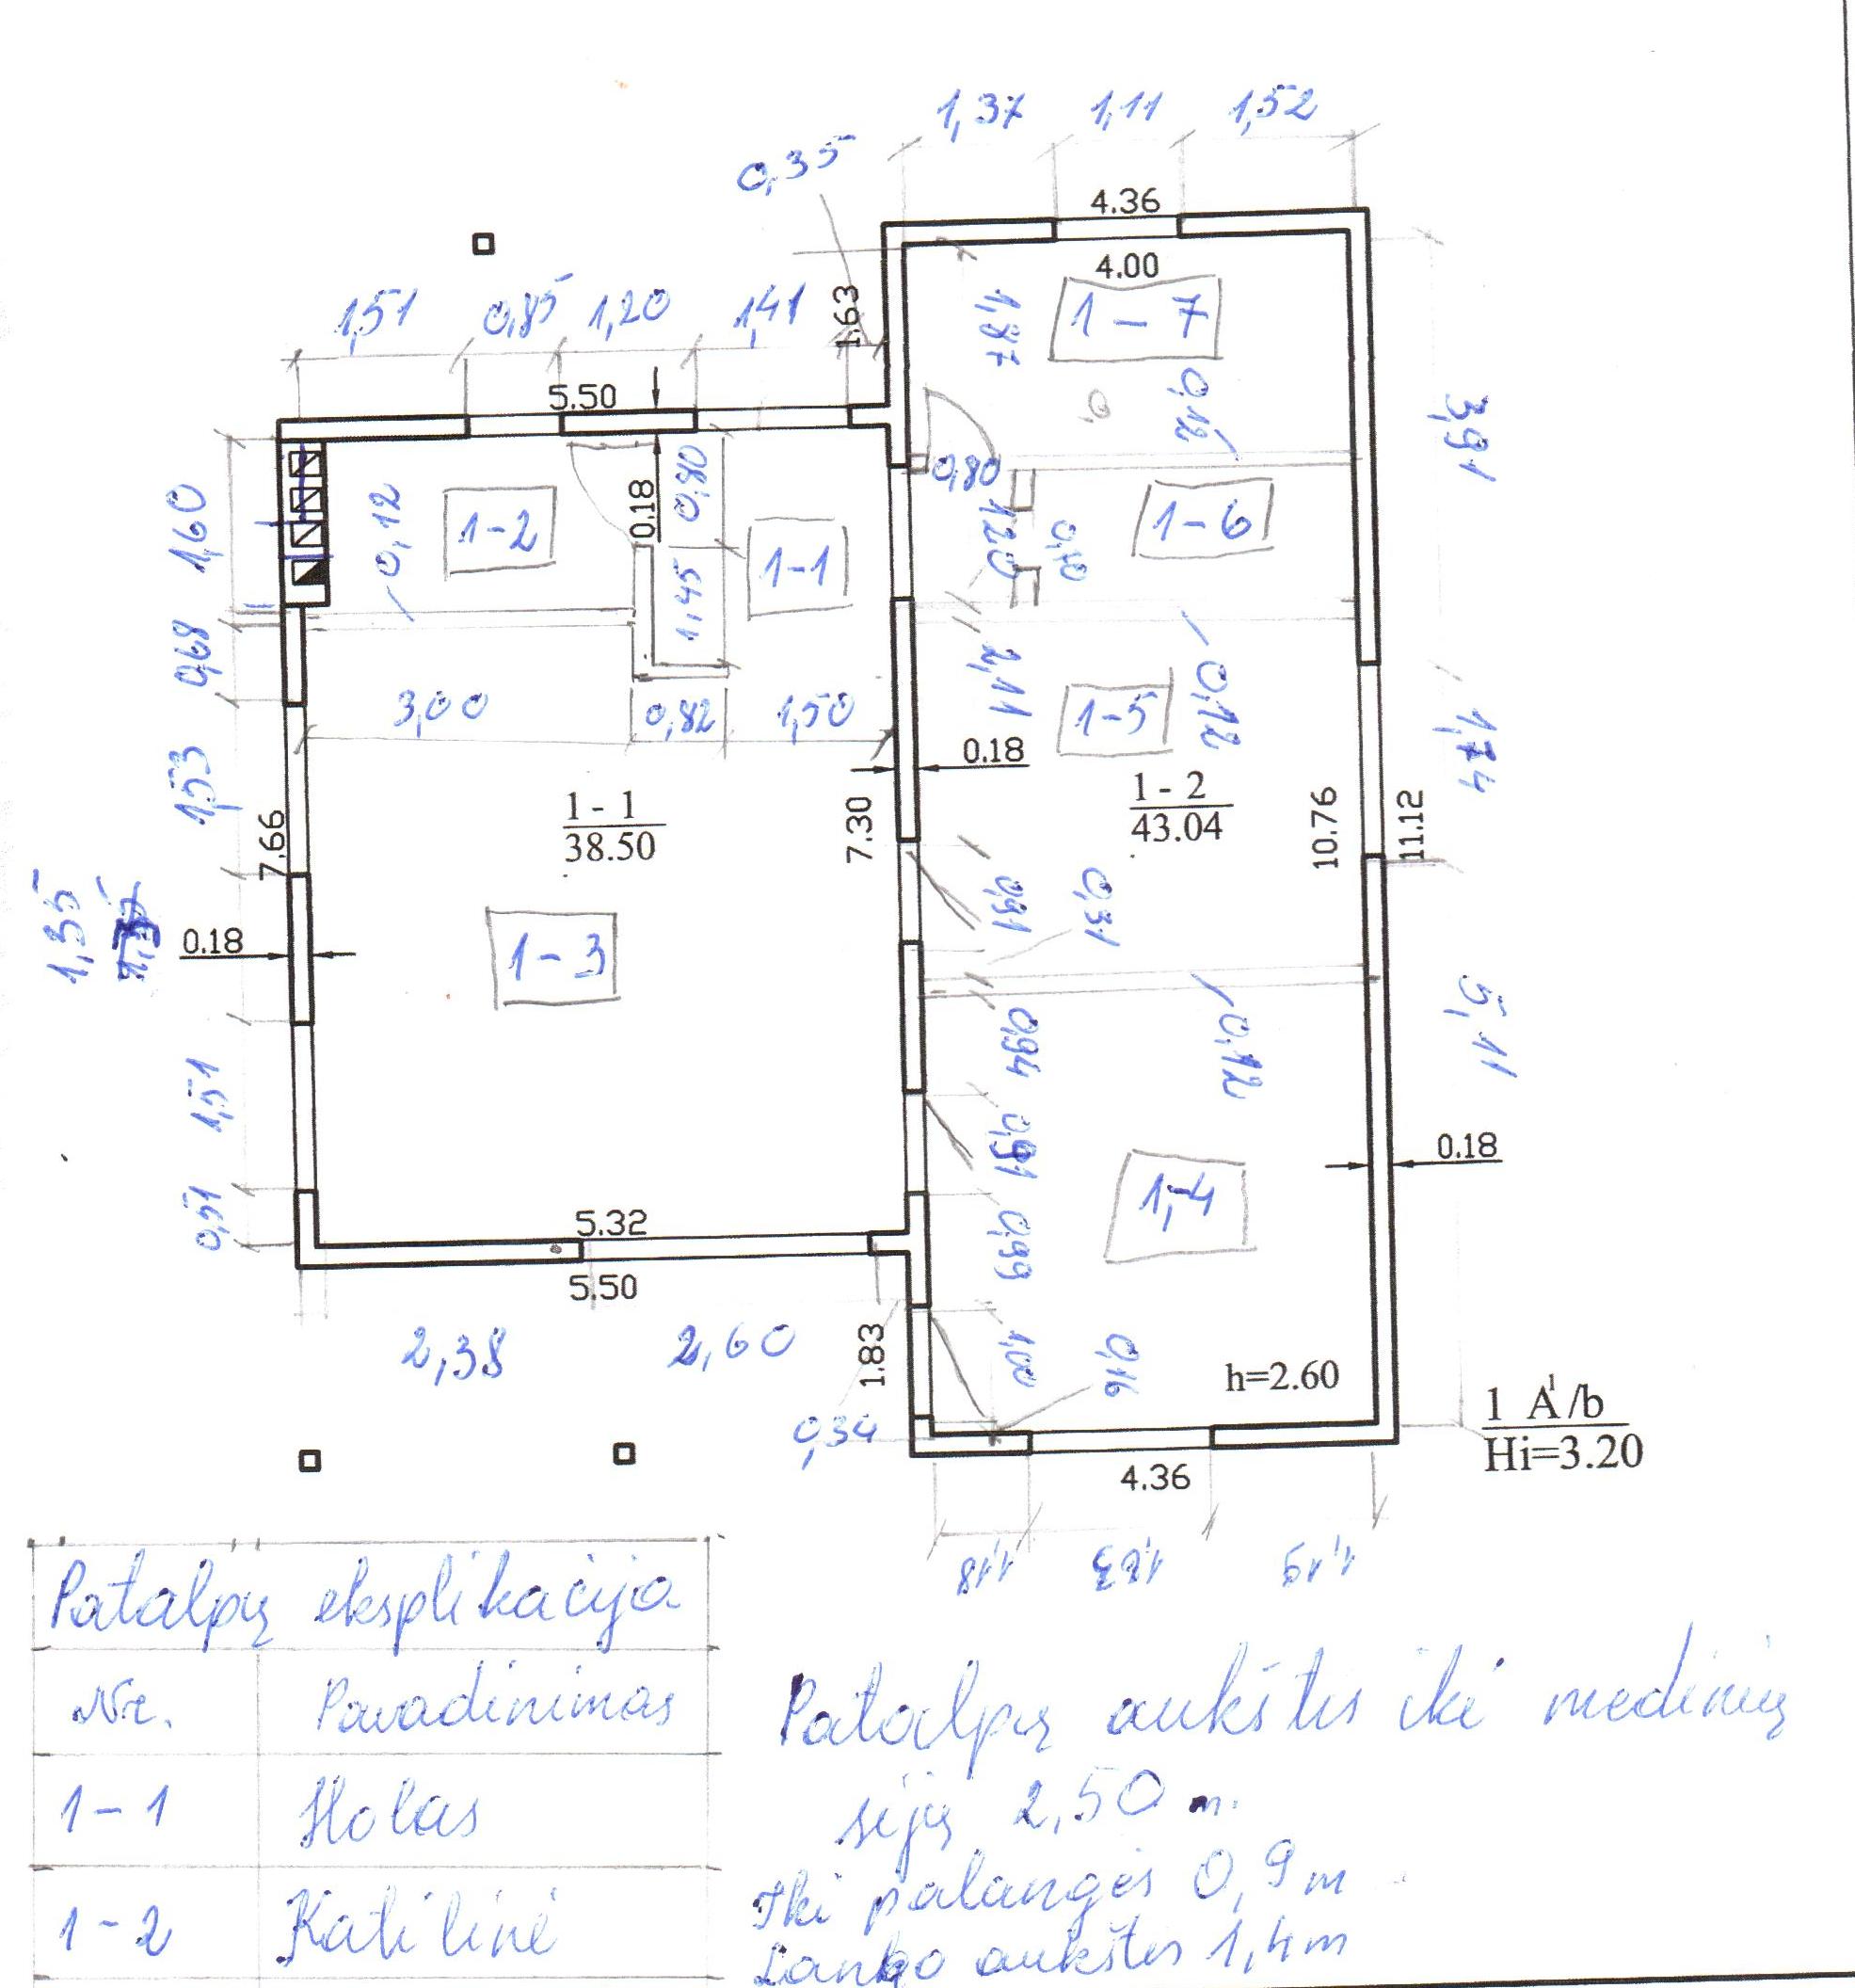 1,37 1,11 1,52
0,35
4.36
4.00
1,51 0,85 1,20 1,41
1.63
1,87
1-7
5.50
0,12
3,91
1,60
0,12
1-2
0.18
0,80
1-1
0,80
1-6
1,20
0,80
1,45
0,68
3,00
0,82
1,50
2,11
1-5
0,12
0.18
1,74
1,53
7.66
1-1
38.50
7.30
1-2
43.04
10.76
11.12
1,35
0.18
1-3
0,91
0,31
5,11
0,94
0,12
1,51
0,91
1,4
0.18
0,51
5.32
5.50
0,99
2,38 2,60
1.83
1,00
0,16
h=2.60
0,34
1 A¹/b
Hi=3.20
4.36
1,18 1,19
Patalpų eksplikacija
Nr. Pavadinimas
1-1 Holas
1-2 Katilinė
Patalpų aukštis iki medinių
sijų 2,50 m.
Iki palangės 0,9m
Lango aukštis 1,4m